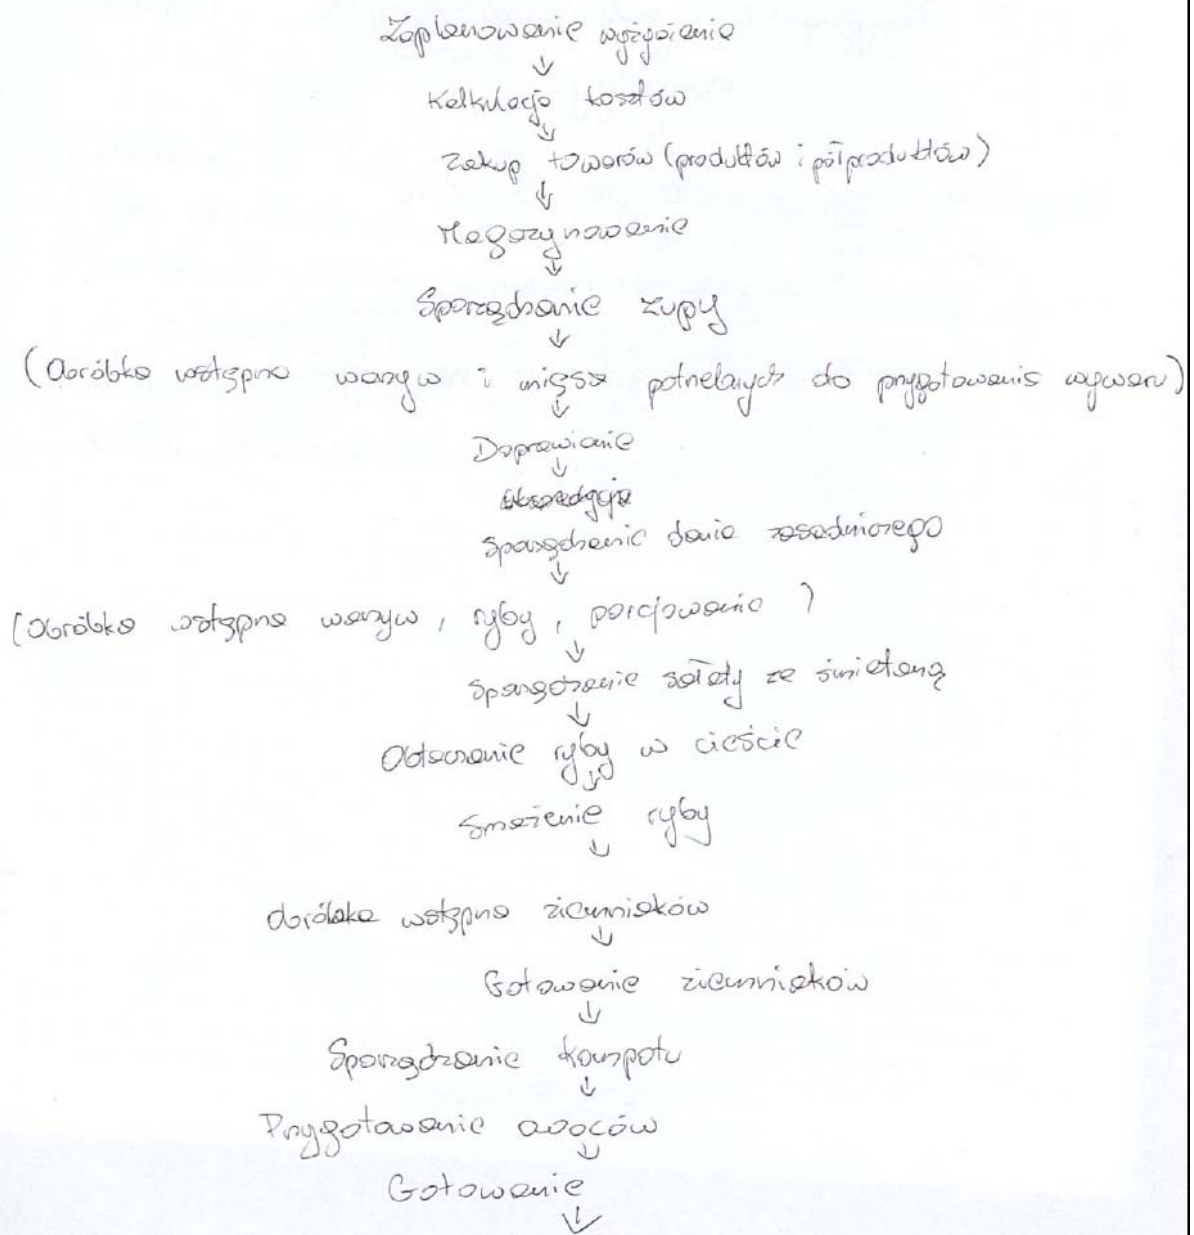 Zaplanowanie wyżywienia
↓
Kalkulacja kosztów
↓
Zakup towarów (produktów i półproduktów)
↓
Magazynowanie
↓
Sporządzanie zupy
↓
(Obróbka wstępna warzyw i mięsa potrzebnych do przygotowania wywaru)
↓
Doprawianie
↓
Sporządzanie dania zasadniczego
↓
(Obróbka wstępna warzyw, ryby, porcjowanie)
↓
Sporządzenie sałaty ze śmietaną
↓
Obtaczanie ryby w cieście
↓
Smażenie ryby
↓
Obróbka wstępna ziemniaków
↓
Gotowanie ziemniaków
↓
Sporządzanie kompotu
↓
Przygotowanie owoców
↓
Gotowanie
↓